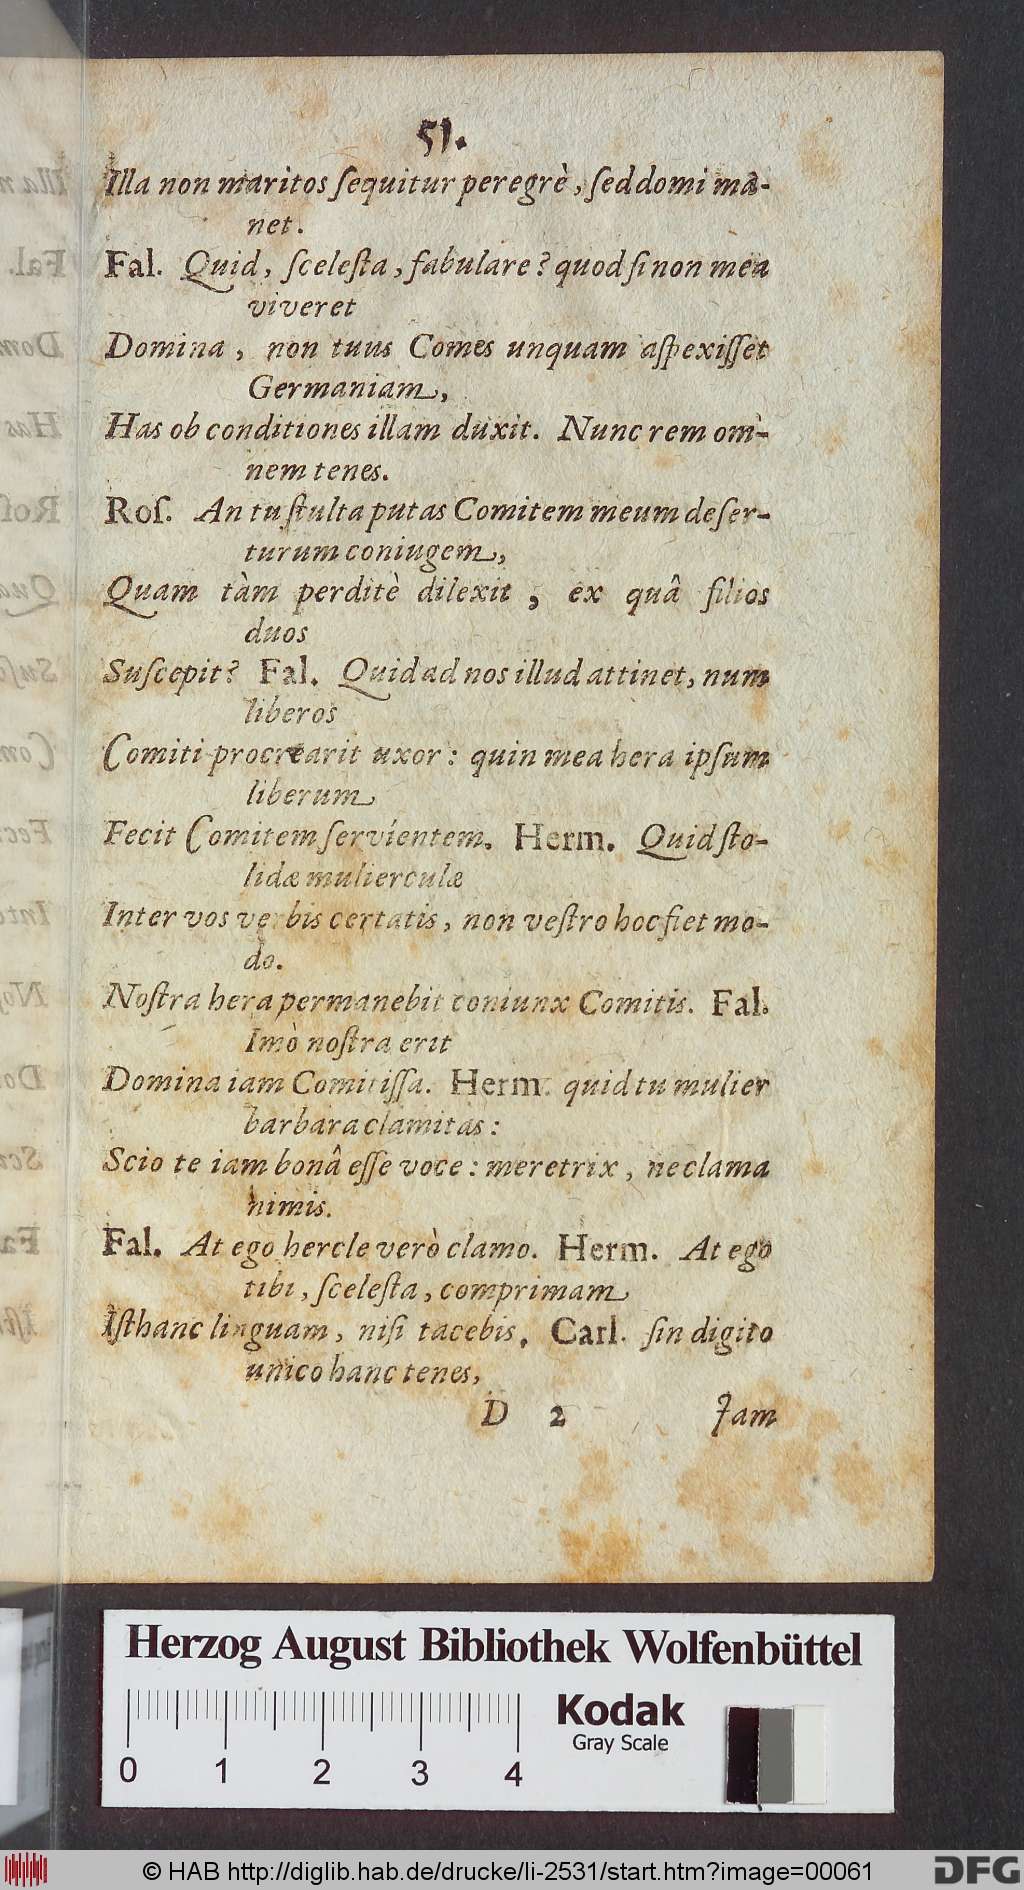 51.
Illa non maritos ſequitur peregrè, ſed domi ma-
net.
Fal. Quid, ſceleſta, fabulare? quod ſi non mea
viveret
Domina, non tuus Comes unquam aſpexiſſet
Germaniam,
Has ob conditiones illam duxit. Nunc rem om-
nem tenes.
Roſ. An tu ſtulta putas Comitem meum deſer-
turum coniugem,
Quam tàm perditè dilexit, ex quâ filios
duos
Suſcepit? Fal. Quid ad nos illud attinet, num
liberos
Comiti procrearit uxor: quin mea hera ipſum
liberum
Fecit Comitem ſervientem. Herm. Quid ſto-
lidæ mulierculæ
Inter vos verbis certatis, non veſtro hoc fiet mo-
do.
Noſtra hera permanebit coniunx Comitis. Fal.
Imò noſtra erit
Domina iam Comitiſſa. Herm. quid tu mulier
barbara clamitas:
Scio te iam bonâ eſſe voce: meretrix, ne clama
nimis.
Fal. At ego hercle verò clamo. Herm. At ego
tibi, ſceleſta, comprimam
Iſthanc linguam, niſi tacebis. Carl. ſin digito
unico hanc tenes,
D 2 Jam
Herzog August Bibliothek Wolfenbüttel
Kodak
Gray Scale
0 1 2 3 4
© HAB http://diglib.hab.de/drucke/li-2531/start.htm?image=00061
DFG